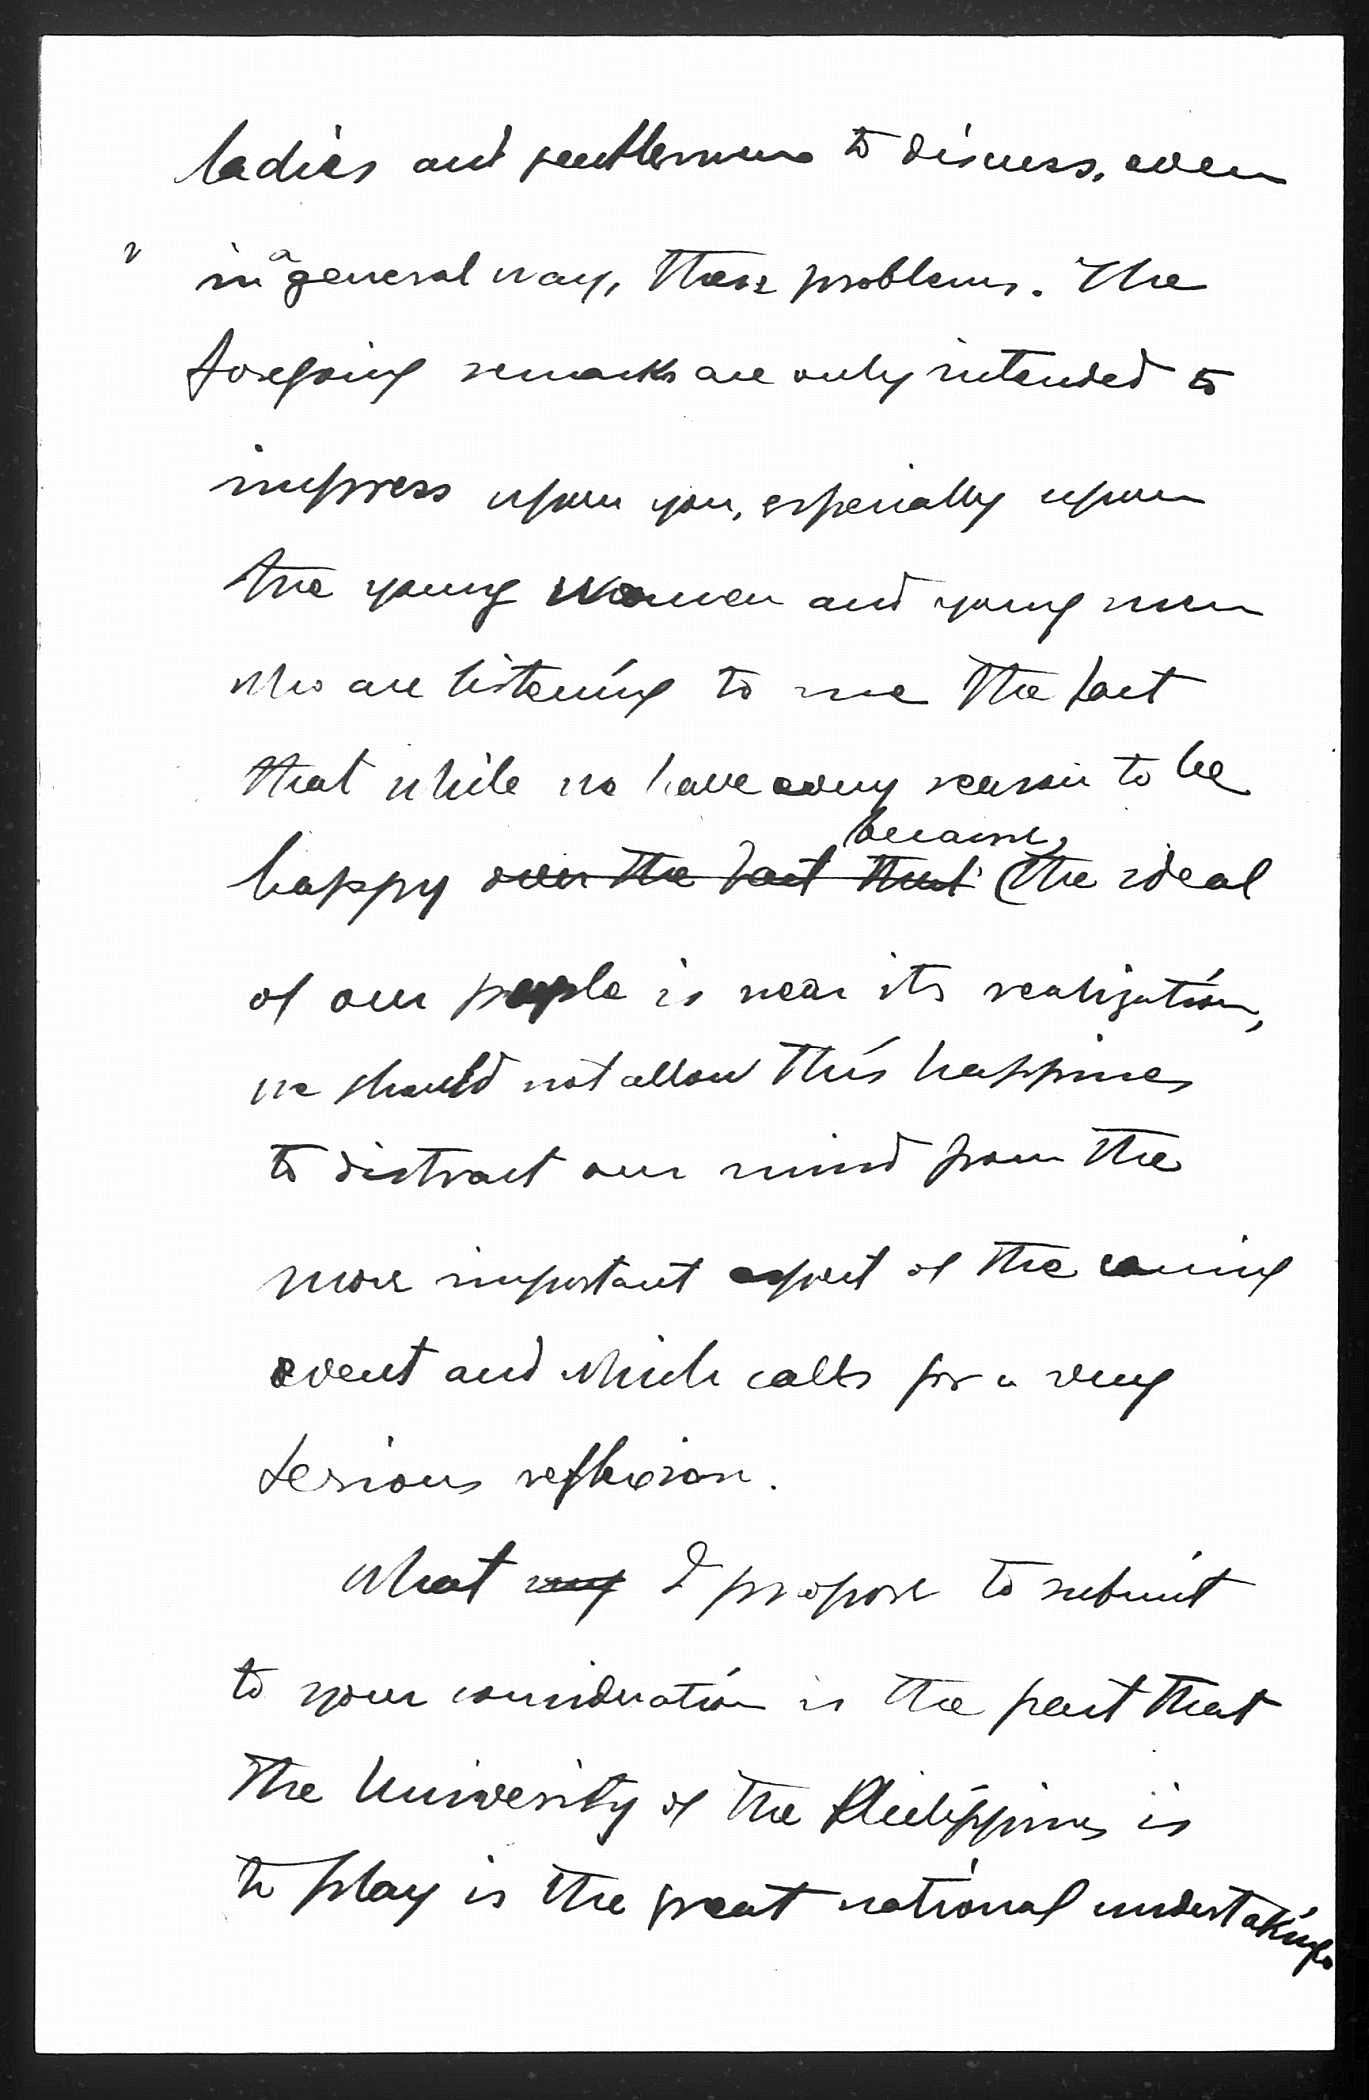 ladies and gentlemen to discuss, even
in a general way, these problems. The
foregoing remarks are only intended to
impress upon you, especially upon
the young women and young men
who are listening to me the fact
that while we have every reason to be
happy over the fact that because the ideal
of our people is near its realization,
we should not allow this happiness
to distract our mind from the
more important aspect of the coming
event and which calls for a very
serious reflexion.
What my I propose to submit
to your consideration is the part that
the University of the Philippines is
to play is the great national undertaking.